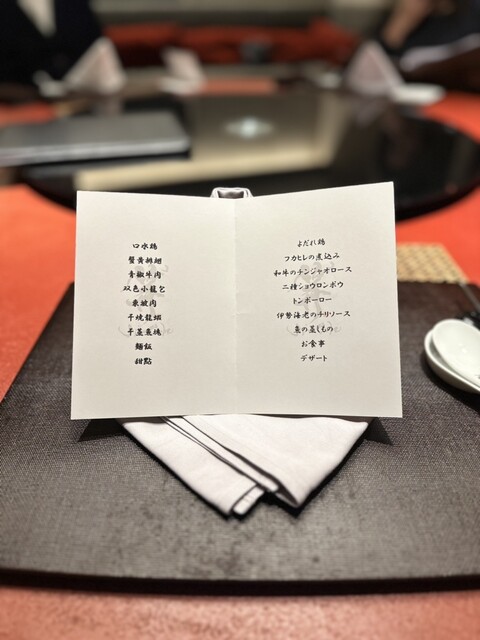 口水鶏
蟹黄排翅
青椒牛肉
双色小籠包
東坡肉
干焼龍蝦
干蒸魚塊
麺飯
甜點
よだれ鶏
フカヒレの煮込み
和牛のチンジャオロース
二種ショウロンポウ
トンポーロー
伊勢海老のチリソース
魚の蒸しもの
お食事
デザート